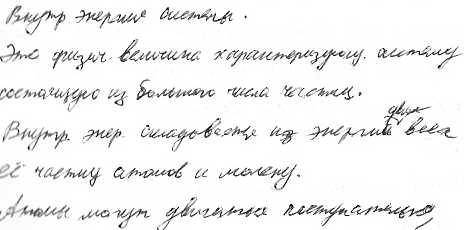 Внутр энергия системы.
Это физич. величина характеризующ. систему
состоящую из большого числа частиц.
Внутр. энер. складовается из энергий движ всех
её частиц атомов и молекул.
Атомы могут двигаться поступательно,